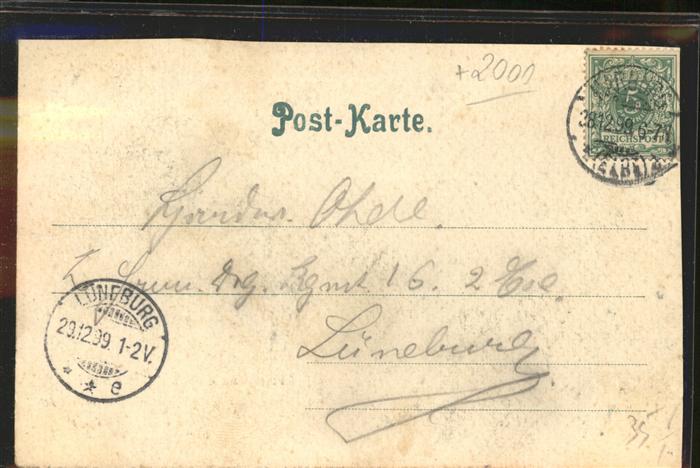 +2000
Post-Karte.
5
REICHSPOST
28.12.99. 6-7N.
Ohde.
Drg. Rgmt 16. 2 Esc.
Lüneburg
LÜNEBURG
29.12.99. 1-2V.
* * e
35